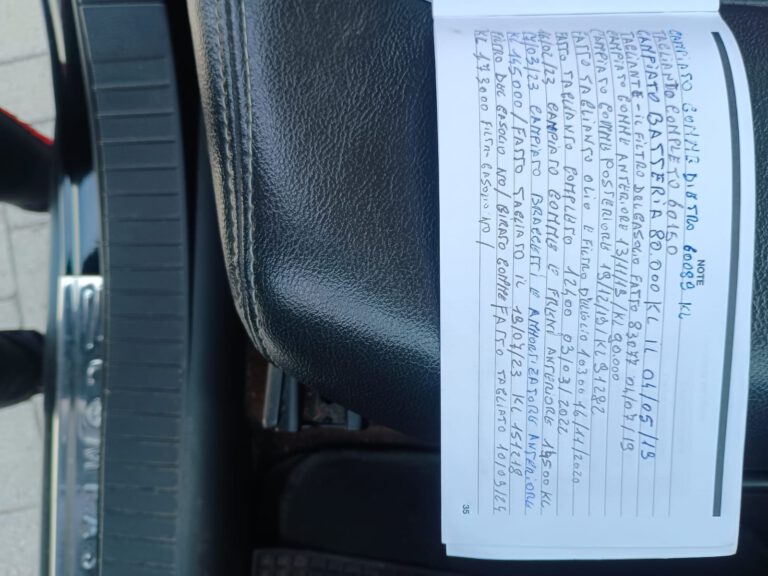 NOTE
CAMPIATO GOMME DIETRO 60089 KL
TAGLIANTO COMPLETO 60150
CAMPIATO BATTERIA 80.000 KL IL 04/05/19
TAGLIANTE - IL FILTRO DEL GASOLIO FATTO 83077 04/07/19
CAMPIATO GOMME ANTERIORE 13/11/19/KL 90.000
CAMPIATO GOMME POSTERIORE 19/12/19/KL 91282
FATTO TAGLIANTO OLIO E FILTRO DELL'OLIO 10300 16/11/2020
FATTO TAGLIANTO COMPLETO 12400 03/03/2022
CAMPIATO GOMME E FRENI ANTERIORE 14500 KL
17/03/23 CAMPIATO BRACCETTI E AMMORTIZATORE ANTERIORE
KL 145000/FATTO TAGLIATO IL 19/07/23 KL 151218
FILTRO DEL GASOLIO NO/GIRATO GOMME/FATTO TAGLIATO 10/09/24
KL 173000 FILTR GASOLIO NO/
35